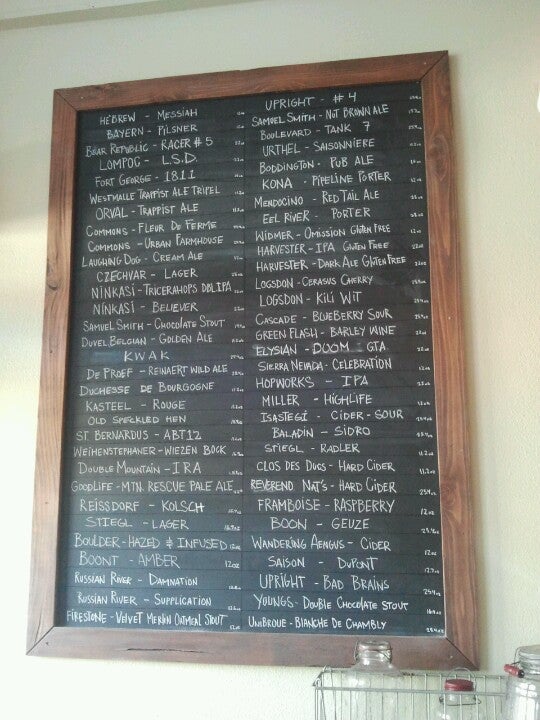 He'brew - Messiah
Bayern - Pilsner
Bear Republic - Racer #5
Lompoc - L.S.D.
Fort George - 1811
Westmalle Trappist Ale Tripel
Orval - Trappist Ale
Commons - Fleur De Ferme
Commons - Urban Farmhouse
Laughing Dog - Cream Ale
Czechvar - Lager
Ninkasi - Tricerahops Dbl IPA
Ninkasi - Believer
Samuel Smith - Chocolate Stout
Duvel Belgian - Golden Ale
Kwak
De Proef - Reinaert Wild Ale
Duchesse De Bourgogne
Kasteel - Rouge
Old Speckled Hen
St Bernardus - ABT 12
Weihenstephaner - Wiezen Bock
Double Mountain - IRA
Goodlife - Mtn. Rescue Pale Ale
Reissdorf - Kolsch
Stiegl - Lager
Boulder - Hazed & Infused 12oz
Boont - Amber 12oz
Russian River - Damnation
Russian River - Supplication
Firestone - Velvet Merlin Oatmeal Stout
Upright - #4
Samuel Smith - Nut Brown Ale
Boulevard - Tank 7
Urthel - Saisonniere
Boddington - Pub Ale
Kona - Pipeline Porter
Mendocino - Red Tail Ale
Eel River - Porter
Widmer - Omission Gluten Free
Harvester - IPA Gluten Free
Harvester - Dark Ale Gluten Free
Logsdon - Cerasus Cherry
Logsdon - Kili Wit
Cascade - Blueberry Sour
Green Flash - Barley Wine
Elysian - Doom GTA
Sierra Nevada - Celebration
Hopworks - IPA
Miller - Highlife
Isastegi - Cider - Sour
Baladin - Sidro
Stiegl - Radler
Clos Des Ducs - Hard Cider 11.2oz
Reverend Nat's - Hard Cider
Framboise - Raspberry 12oz
Boon - Geuze
Wandering Aengus - Cider
Saison - Dupont
Upright - Bad Brains
Youngs - Double Chocolate Stout
Unibroue - Blanche De Chambly